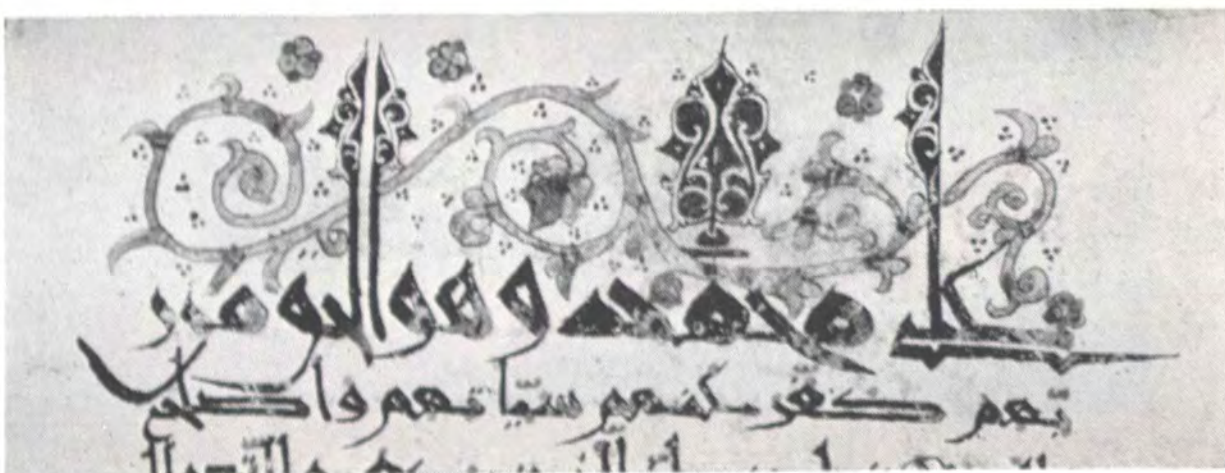 على محمد وهو الحق من ر
بّهم كفّر عنهم سيّاتهم واصلح